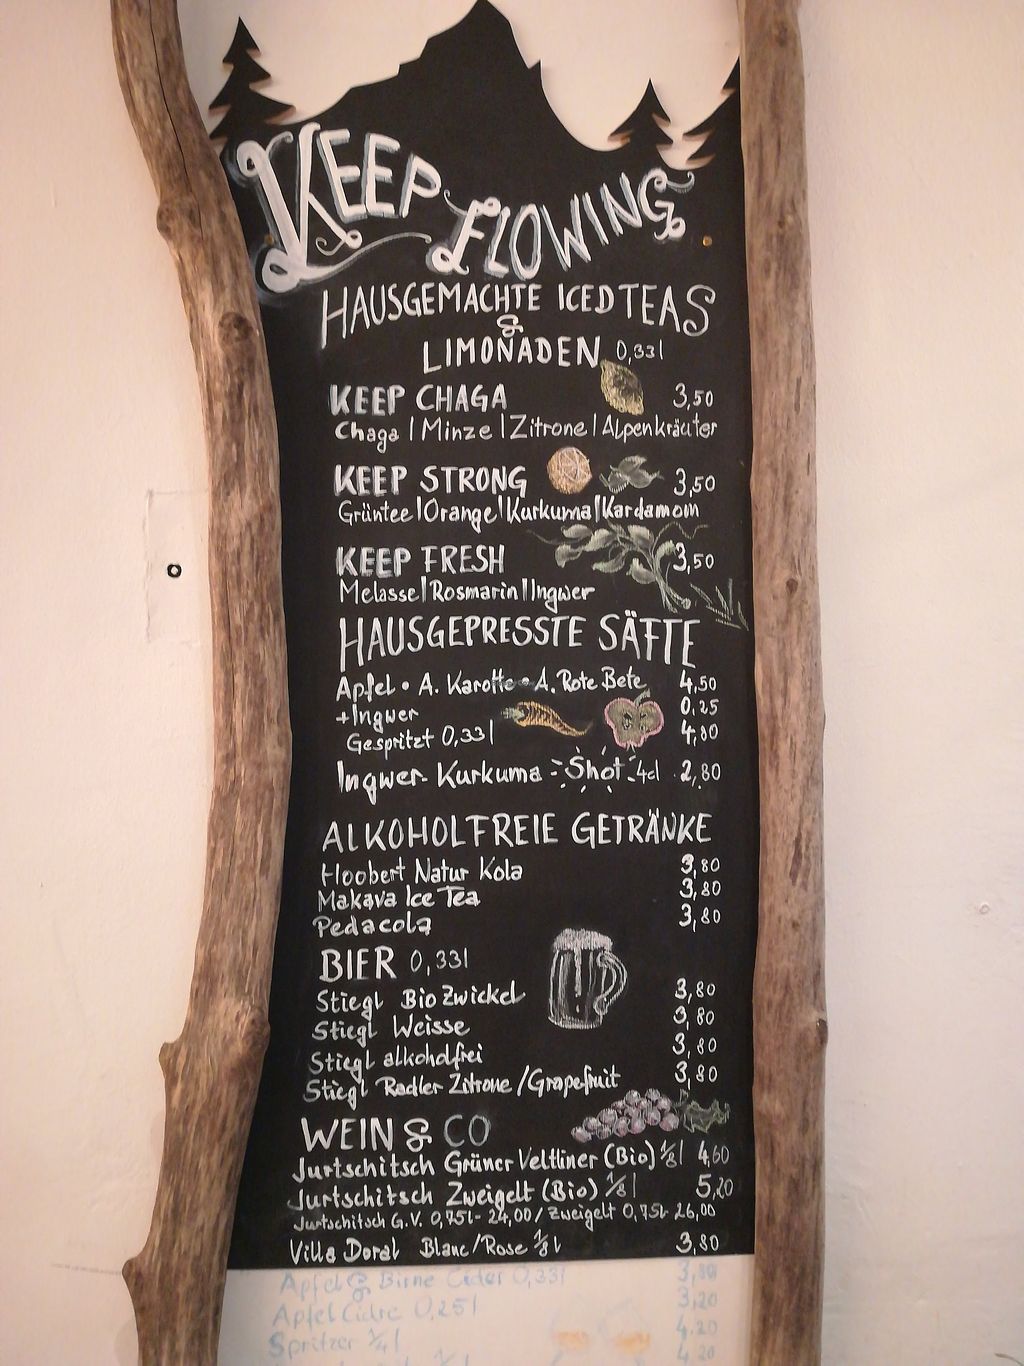 KEEP FLOWING
HAUSGEMACHTE ICED TEAS
&
LIMONADEN 0,33l
KEEP CHAGA 3,50
Chaga | Minze | Zitrone | Alpenkräuter
KEEP STRONG 3,50
Grüntee | Orange | Kurkuma | Kardamom
KEEP FRESH 3,50
Melasse | Rosmarin | Ingwer
HAUSGEPRESSTE SÄFTE
Apfel • A. Karotte • A. Rote Bete 4,50
+Ingwer 0,25
Gespritzt 0,33l 4,80
Ingwer-Kurkuma-Shot-4cl 2,80
ALKOHOLFREIE GETRÄNKE
Hoobert Natur Kola 3,80
Makava Ice Tea 3,80
Pedacola 3,80
BIER 0,33l
Stiegl Bio Zwickel 3,80
Stiegl Weisse 3,80
Stiegl alkoholfrei 3,80
Stiegl Radler Zitrone/Grapefruit 3,80
WEIN & CO
Jurtschitsch Grüner Veltliner (Bio) 1/8l 4,60
Jurtschitsch Zweigelt (Bio) 1/8l 5,20
Jurtschitsch G.V. 0,75l- 24,00 / Zweigelt 0,75l- 26,00
Villa Doral Blanc/Rose 1/8l 3,80
Apfel & Birne Cider 0,33l 3,80
Apfel Cidre 0,25l 3,20
Spritzer 1/4l 4,20
4,20